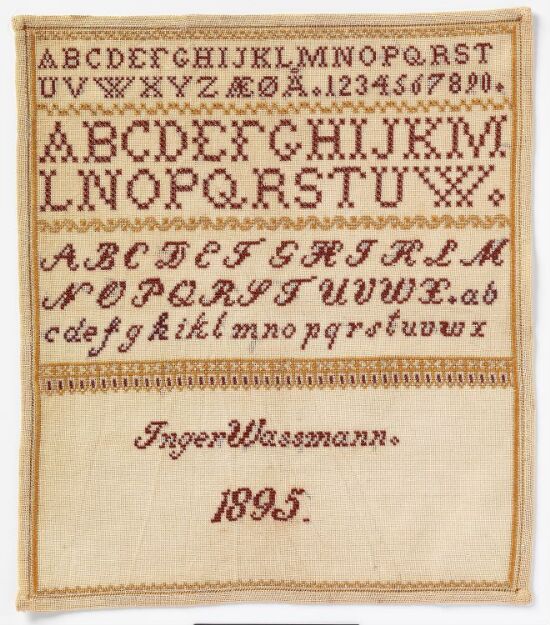 ABCDEFGHIJKLMNOPQRST
UVWXYZÆØÅ.1234567890.
ABCDEFGHIJKM
LNOPQRSTUW.
ABCDEFGHIKLM
NOPQRSTUVWX.ab
cdefghiklmnopqrstuvwx
Inger Wassmann.
1895.